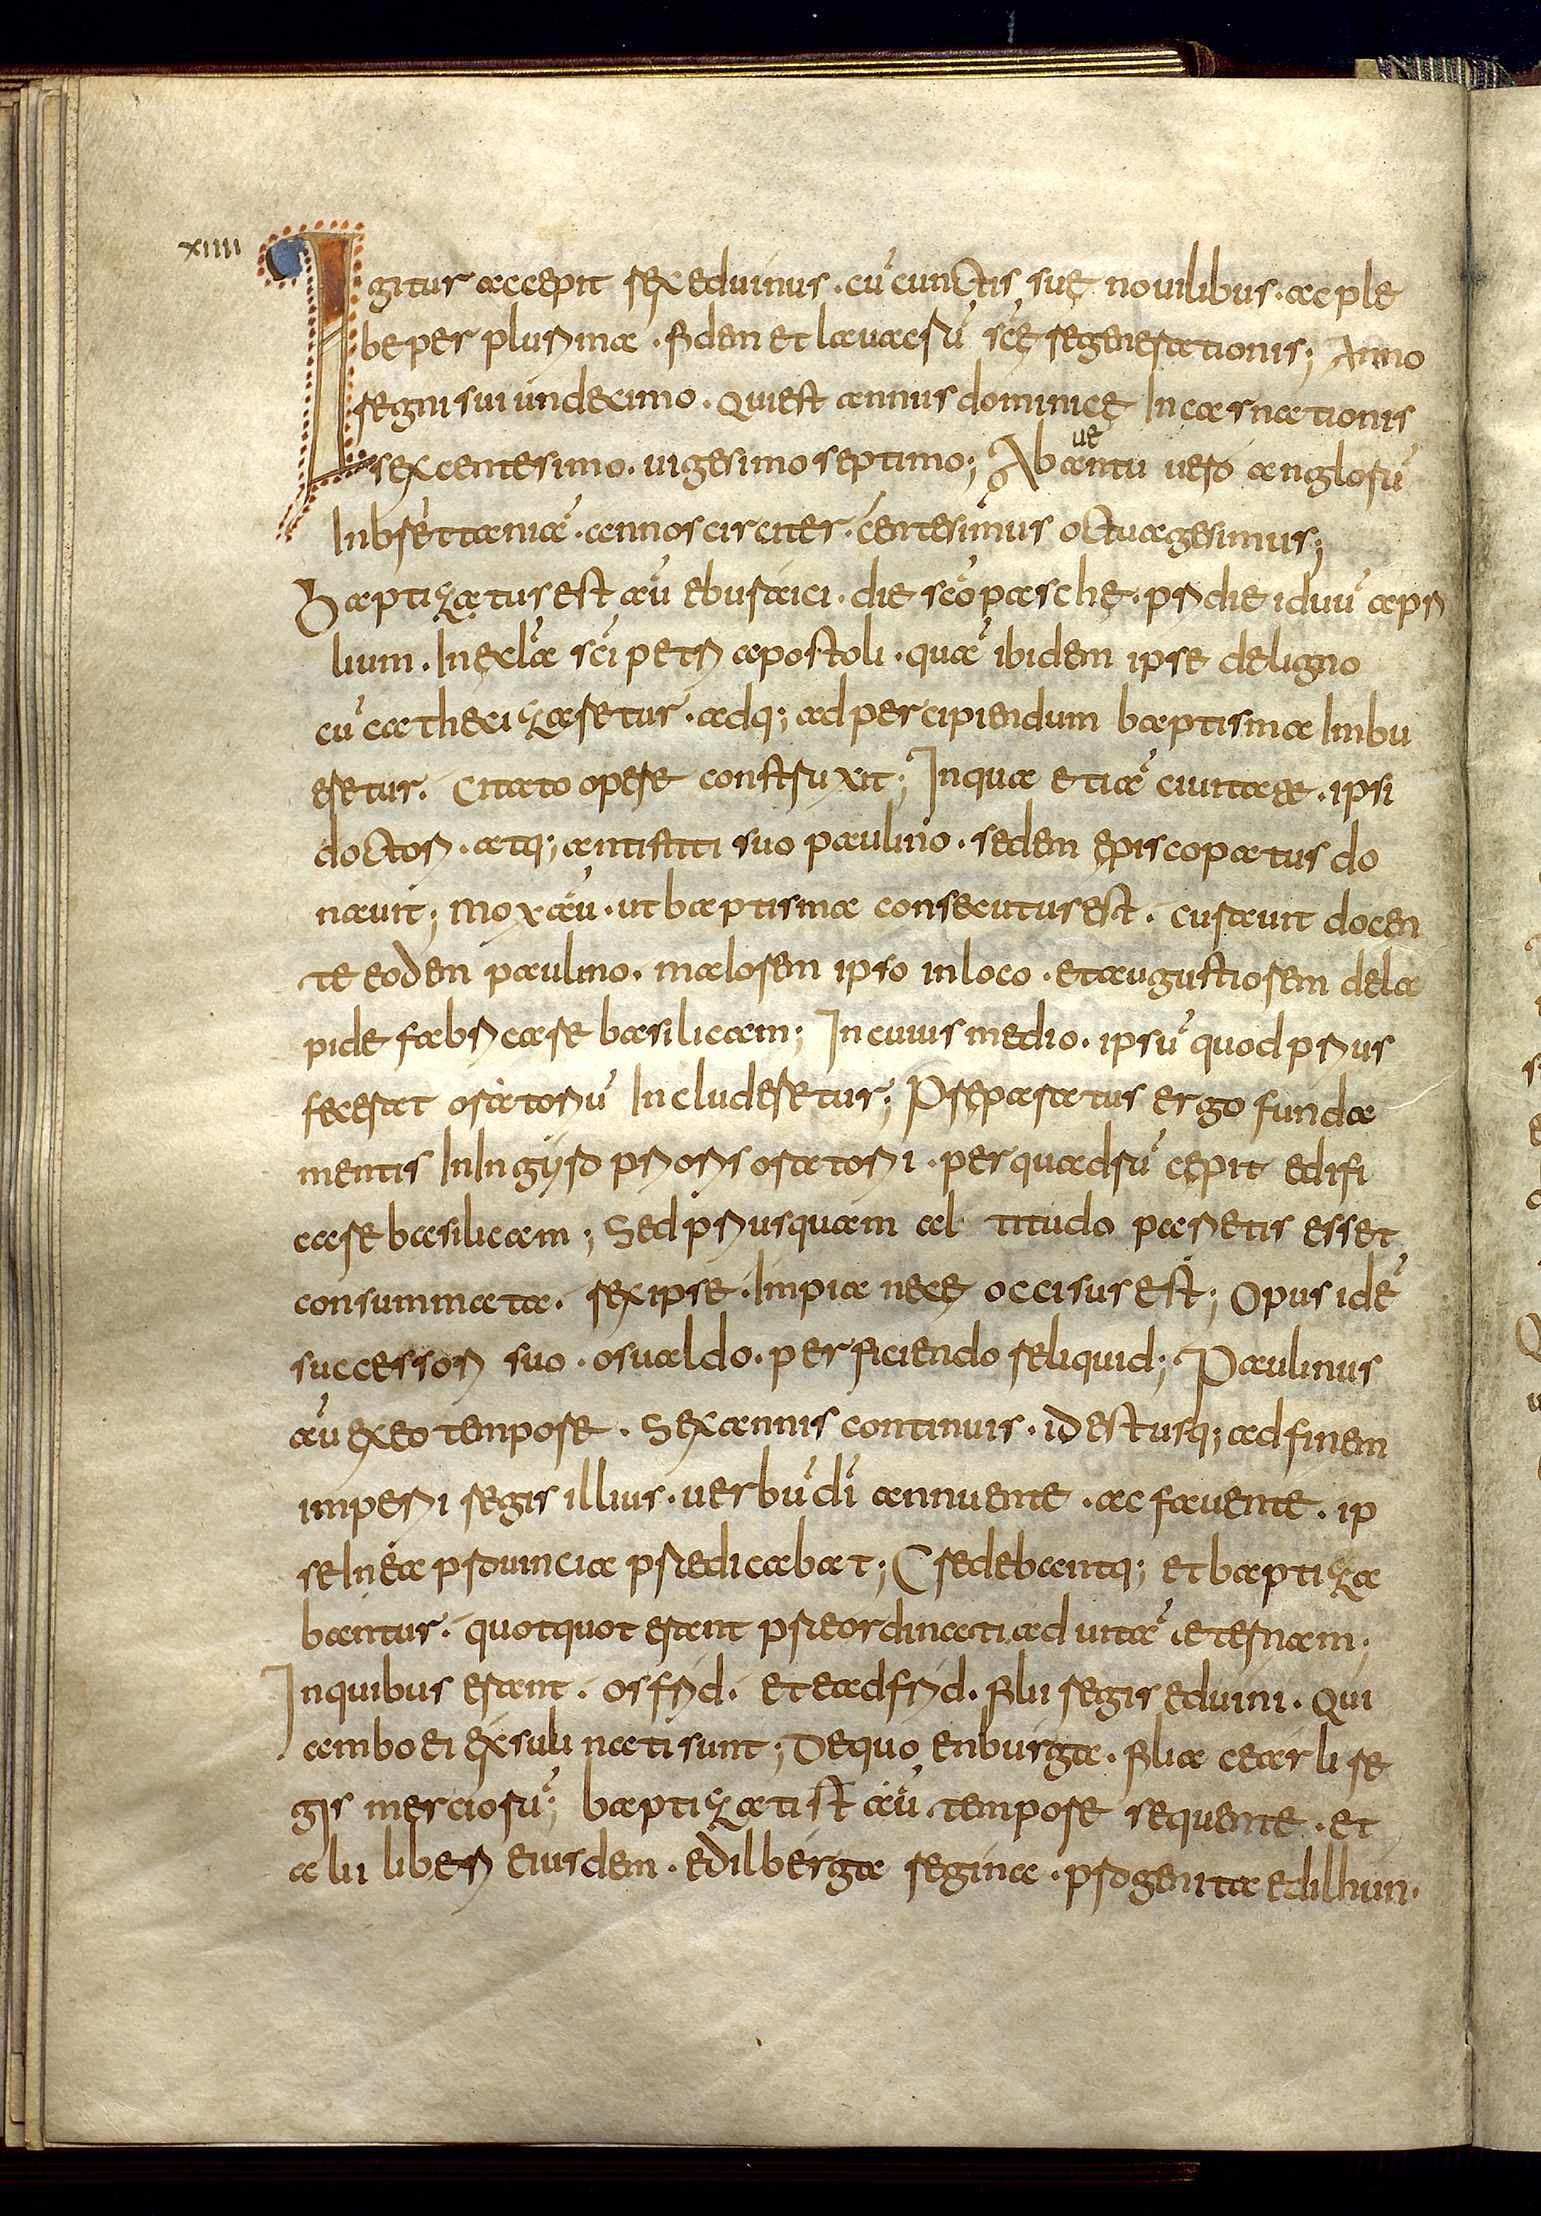 xiiii
Igitur accepit rex eduinus · cū cunctis suę nouilibus · ac ple
be per plurima · fidem et lauacrū scę regenerationis; Anno
regni sui undecimo · qui est annus dominicę Incarnationis
sexcentesimo · uigesimo septimo; Abantu uero anglorū
ue
In brettaniā · annos circiter · centesimus octuagesimus;
Baptizatus est aū eburaici · die scō paschę · pridie iduū apri
lium · In ecl̄a sc̄i petri apostoli · quā ibidem ipse de ligno
cū cathecizaretur · adq; ad percipiendum baptisma Imbu
eretur · citato opere construxit; In qua etiā ciuitate · ipsi
doctori · atq; antistiti suo paulino · sedem episcopatus do
nauit; mox aū · ut baptisma consecutus est · curauit docen
te eodem paulino · malorem ipso in loco · et augustiorem de la
pide fabricare basilicam; In cuius medio · ipsū quod prius
fecerat oratoriū Includeretur; Preparatus ergo funda
mentis In Ingyro prioris oratorii · per quadrū cępit edifi
care basilicam; Sed priusquam al titudo parietis esset
consummata · rex ipse · Impia necę occisus est; Opus idē
successori suo · osualdo · perficiendo reliquid; Paulinus
aū ex eo tempore · Sex annis continuis · id est usq; ad finem
imperii regis illius · uerbū dī annuente · ac fauente · ip
se In ea prouincia predicabat; Credebantq; et baptiza
bantur · quotquot erant preordinati ad uitā eternam ·
In quibus erant · osfrid · et eadfrid · filii regis eduini · qui
ambo ei exsuli nati sunt; De quo enburga · filia cearli re
gis merciorū; baptizati s̄t aū tempore sequente · et
alii liberi eiusdem · edilberga regina · progenita edilhun ·